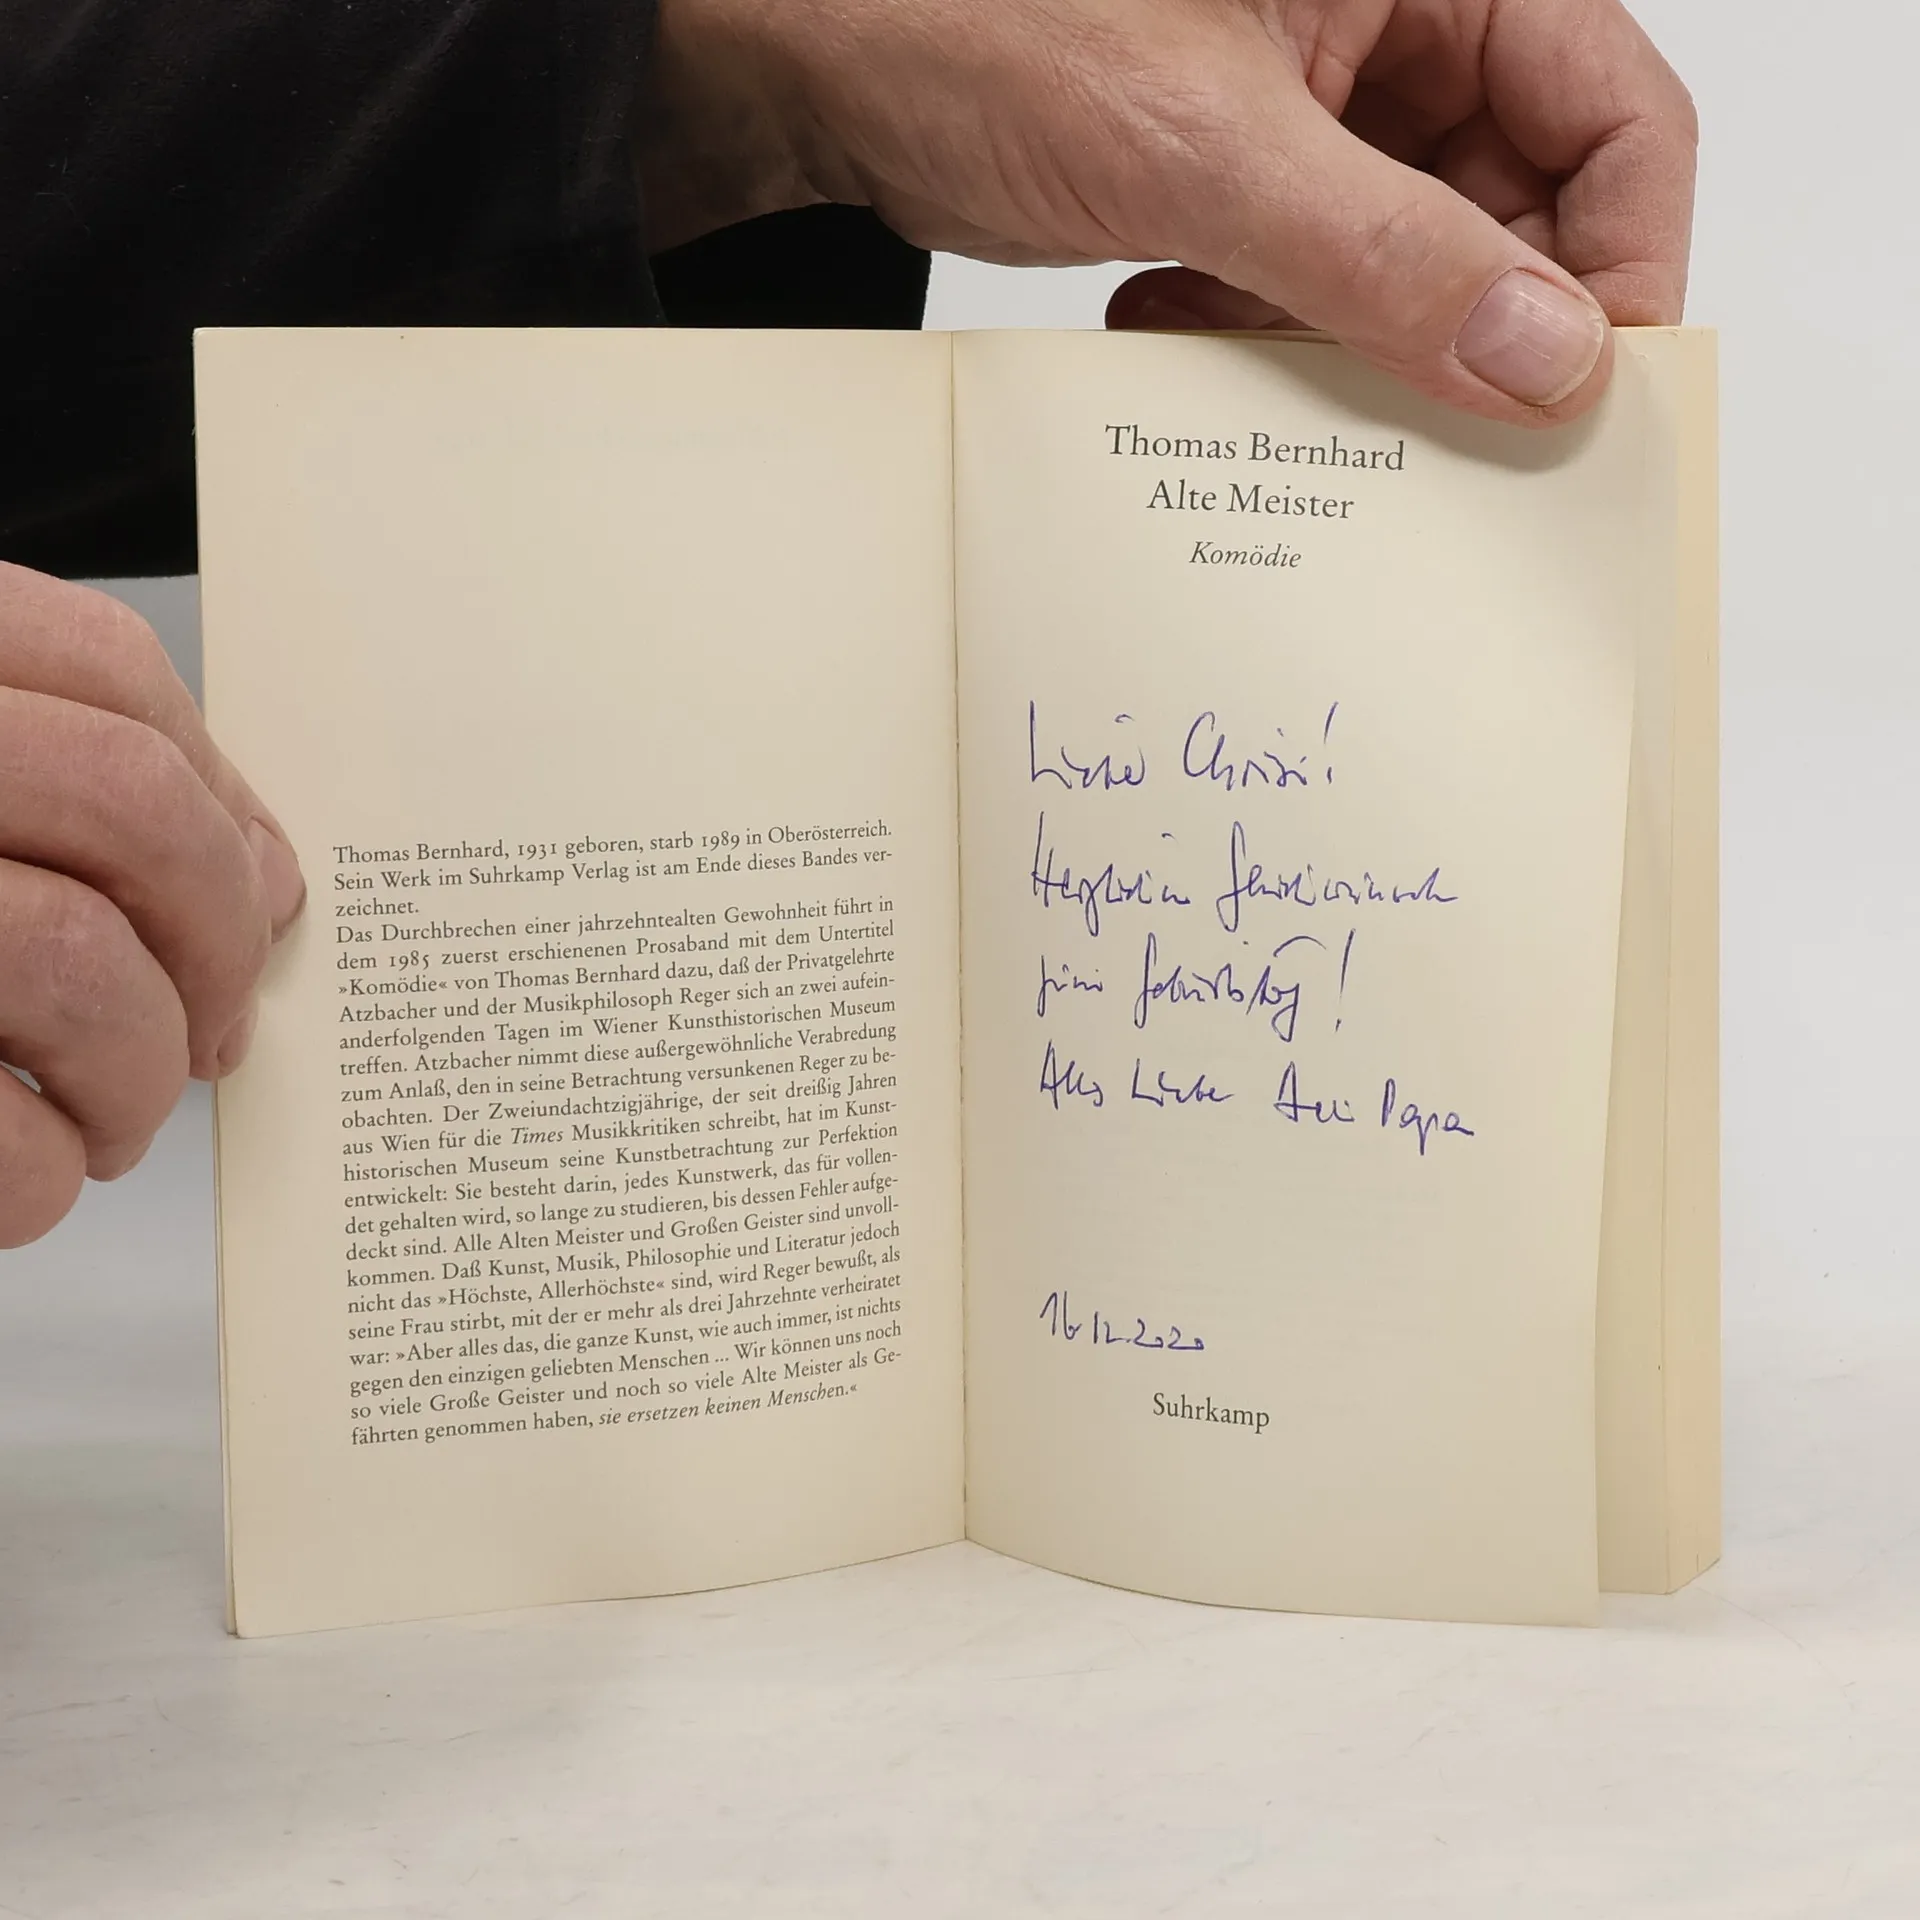 Thomas Bernhard, 1931 geboren, starb 1989 in Oberösterreich.
Sein Werk im Suhrkamp Verlag ist am Ende dieses Bandes ver-
zeichnet.
Das Durchbrechen einer jahrzehntealten Gewohnheit führt in
dem 1985 zuerst erschienenen Prosaband mit dem Untertitel
»Komödie« von Thomas Bernhard dazu, daß der Privatgelehrte
Atzbacher und der Musikphilosoph Reger sich an zwei aufein-
anderfolgenden Tagen im Wiener Kunsthistorischen Museum
treffen. Atzbacher nimmt diese außergewöhnliche Verabredung
zum Anlaß, den in seine Betrachtung versunkenen Reger zu be-
obachten. Der Zweiundachtzigjährige, der seit dreißig Jahren
aus Wien für die Times Musikkritiken schreibt, hat im Kunst-
historischen Museum seine Kunstbetrachtung zur Perfektion
entwickelt: Sie besteht darin, jedes Kunstwerk, das für vollen-
det gehalten wird, so lange zu studieren, bis dessen Fehler aufge-
deckt sind. Alle Alten Meister und Großen Geister sind unvoll-
kommen. Daß Kunst, Musik, Philosophie und Literatur jedoch
nicht das »Höchste, Allerhöchste« sind, wird Reger bewußt, als
seine Frau stirbt, mit der er mehr als drei Jahrzehnte verheiratet
war: »Aber alles das, die ganze Kunst, wie auch immer, ist nichts
gegen den einzigen geliebten Menschen ... Wir können uns noch
so viele Große Geister und noch so viele Alte Meister als Ge-
fährten genommen haben, sie ersetzen keinen Menschen.«
Thomas Bernhard
Alte Meister
Komödie
Liebe Chrisi!
Herzlichen Glückwunsch
zum Geburtstag!
Alles Liebe Dein Papa
16.12.2020
Suhrkamp